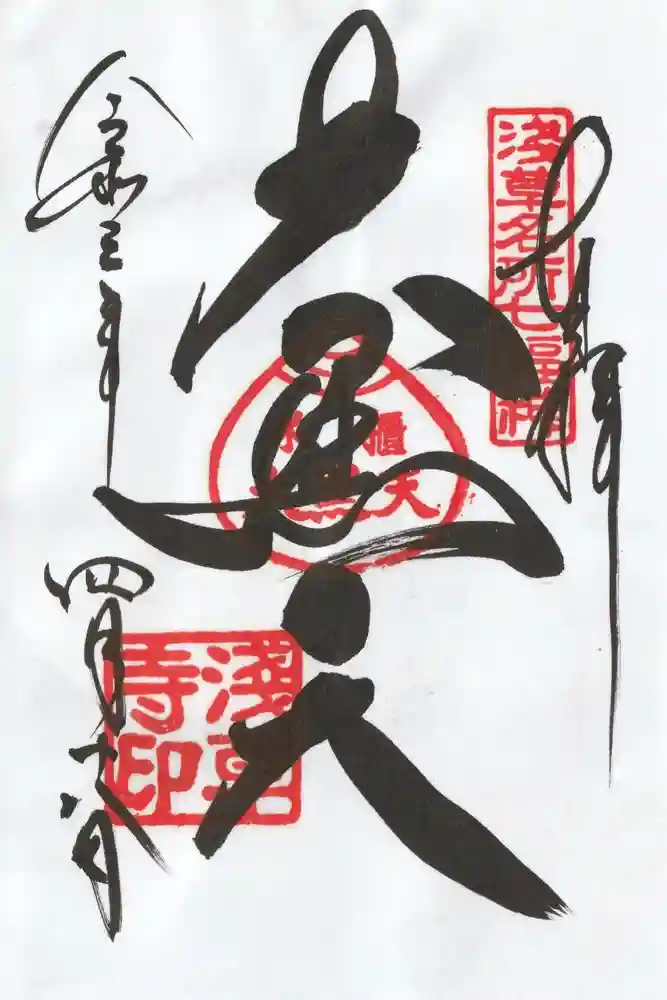 奉拝
浅草名所七福神
大黒天
淺草
寺印
令和三年
四月十八日